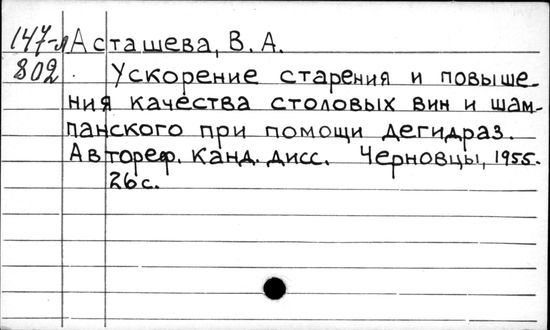 147-л Асташева, В. А.
802 Ускорение старения и повыше-
ния качества столовых вин и шам-
панского при помощи дегидраз.
Автореф. канд. дисс. Черновцы, 1955.
26 с.